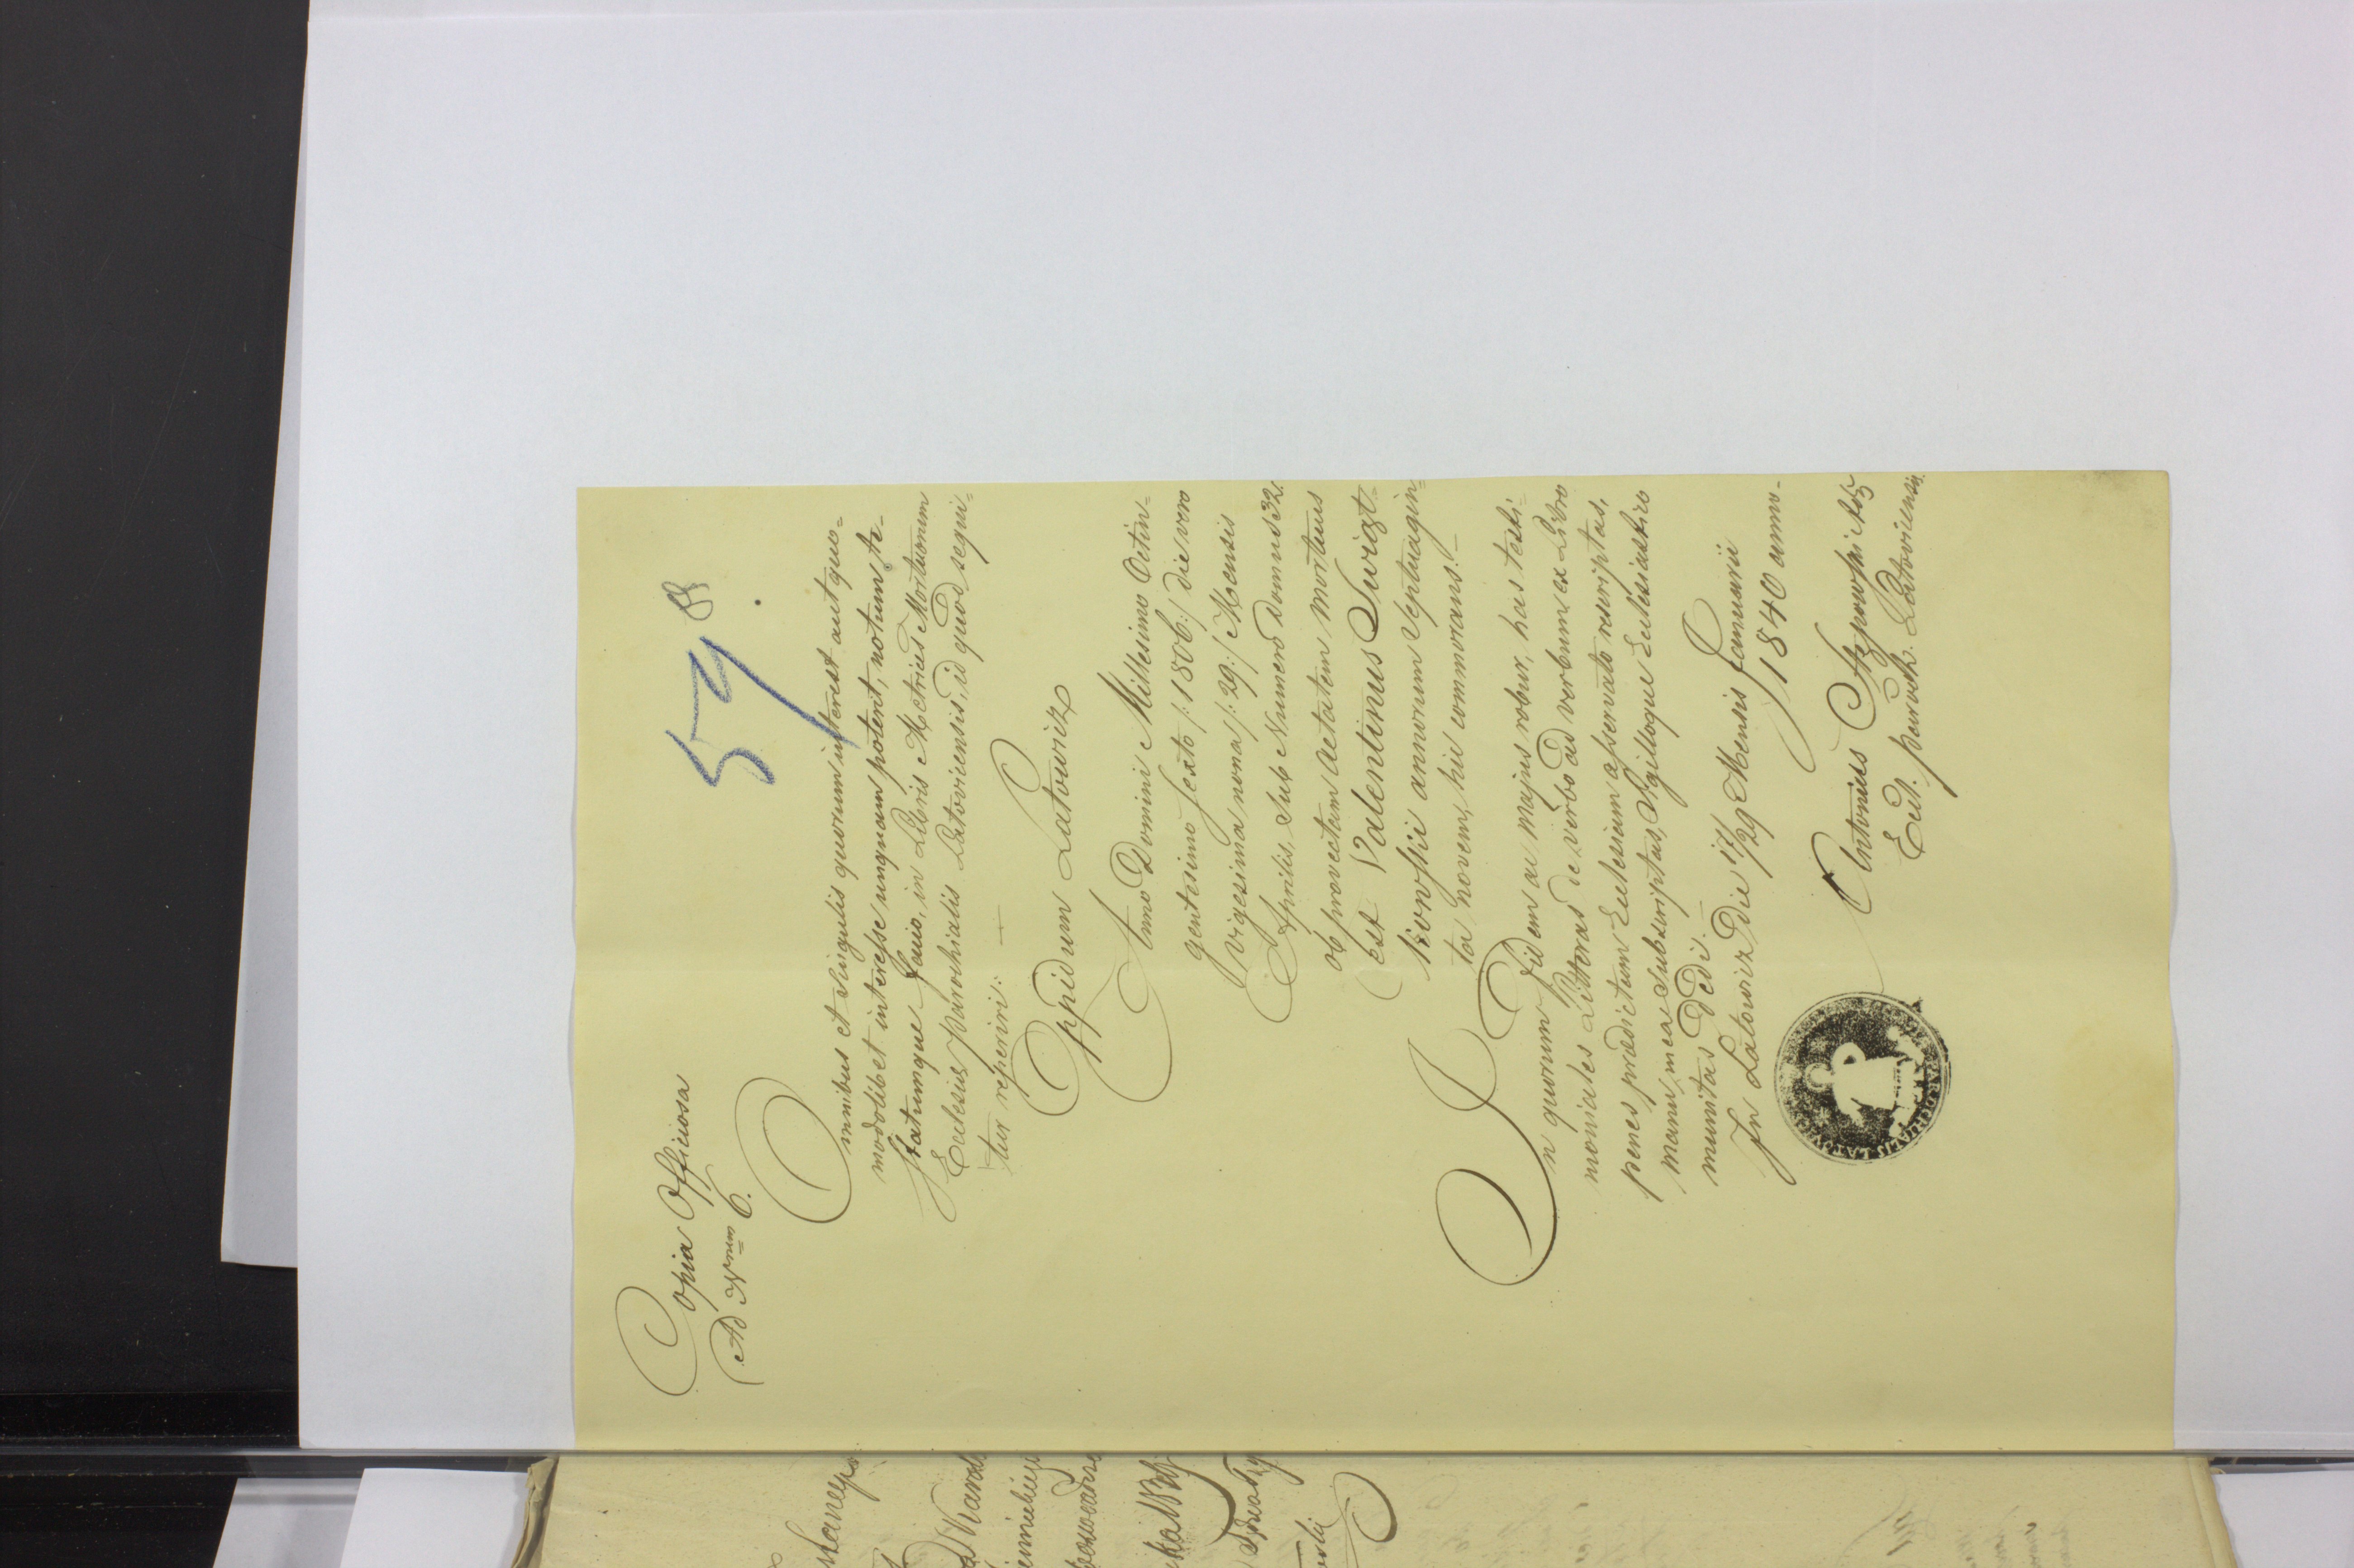 59
Copia Officiosa
Ad Nrum 6.
Omnibus et singulis quorum interest aut quo=
modolibet interesse unquam poterit, notum te-
statumque facio, in Libris Metrices Mortuorum
Ecclesiae Parochialis Latovicensis, id quod sequi=
tur reperiri:
Oppidum Latowicz
Anno Domini Millesimo Octin=
gentesimo sexto /:1806:/ die vero
vigesima nona /:29:/ Mensis
Aprilis, sub Numero domus 32.
ob provectam aetatem mortuus
est Valentinus Swiąt-
kowski annorum septuagin=
ta novem, hic commorans.
In quorum fidem ac majus robur, has testi-
moniales Litteras de verbo ad verbum ex Libro
penes praedictam Ecclesiam asservato rescriptas,
manu mea subscriptas, Sigilloque Ecclesiastico
munitas dedi.
In Latowicz Die 17/29 Mensis Januarii
1840 anno.
Antonius
Eccl. paroch. Latoviensis.
PAROCHIALIS